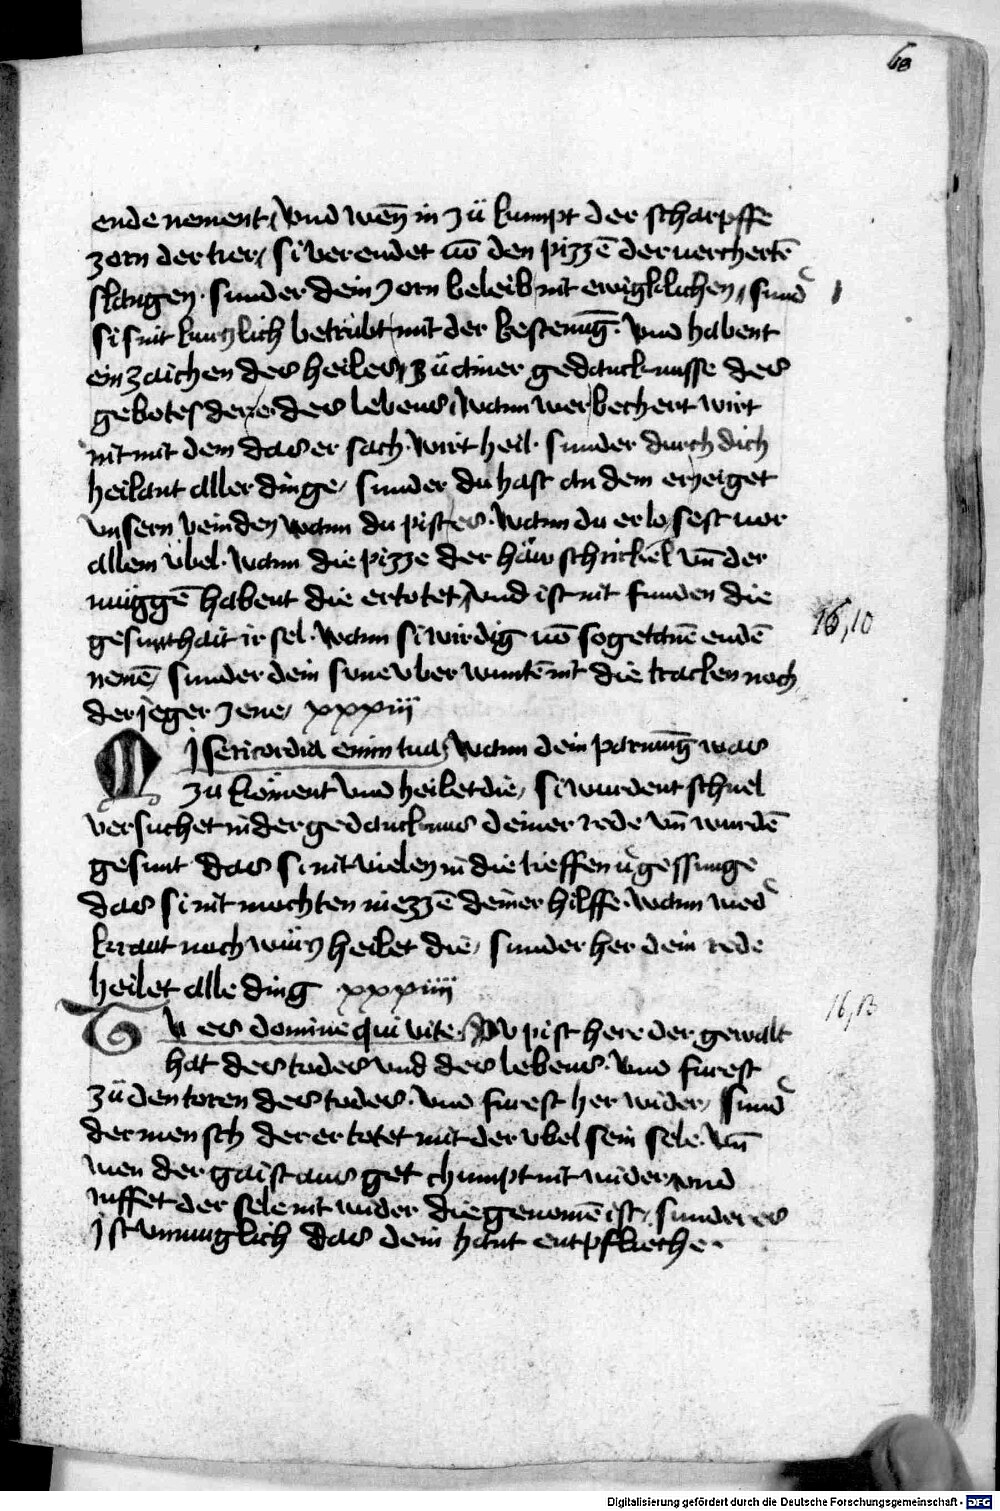 68
ende nement / vnd wen̄ in zů kumpt der scharpffe
zorn der tier / si verendet vō den pizzē der verchertē
slangen · sunder dein zorn beleib nit ewigklichen / sund
si sint kurtzlich betrubt mit der kestenuḡ · vnd habent
ein zaichen des heiles / zů ainer gedancknusse des
gebotes der e des lebens / wann wer bechert wirt
nit mit dem das er sach · wirt heil · sunder durch dich
heilant aller dinge / sunder du hast an dem erzeiget
vnsern veinden wann du pist es · wann du erlosest uor
allem v̈bel · wann die pizze der häwschrickel vn̄ der
muggē habent die ertotet / vnd ist nit funden die
gesunthait ir sel · wann si wirdig vō sogetanē endē
nemē / sunder dein sune vber wuntē nit die tracken noch
der jeger zene / xxxiij
16,10
Misericordia enim tua / Wann dein parmuḡ was
zu kôment vnd heilet die / si wurdent schnel
versuchet in der gedancknus deiner rede vn̄ wurdē
gesunt das si nit vielen in die tieffen v̓gessunge
das si nit mochten niezzē deiner hilffe · wann wed
kraut nach würtz heilet die / sunder her dein rede
heilet alle ding xxxiiij
16,13
Tu es domine qui vite · Dv pist here der gewalt
hat des todes vnd des lebens · vnd furest
zů den toren des todes · vnd furest her wider / sund
der mensch der ertotet mit der vbel sein sele · vn̄
wen der gaist aus get chumpt nit wider / vnd
ruffet der sele nit wider die genomē ist / sunder es
ist vnmuglich das dein hant entpflieche ·
Digitalisierung gefördert durch die Deutsche Forschungsgemeinschaft - DFG